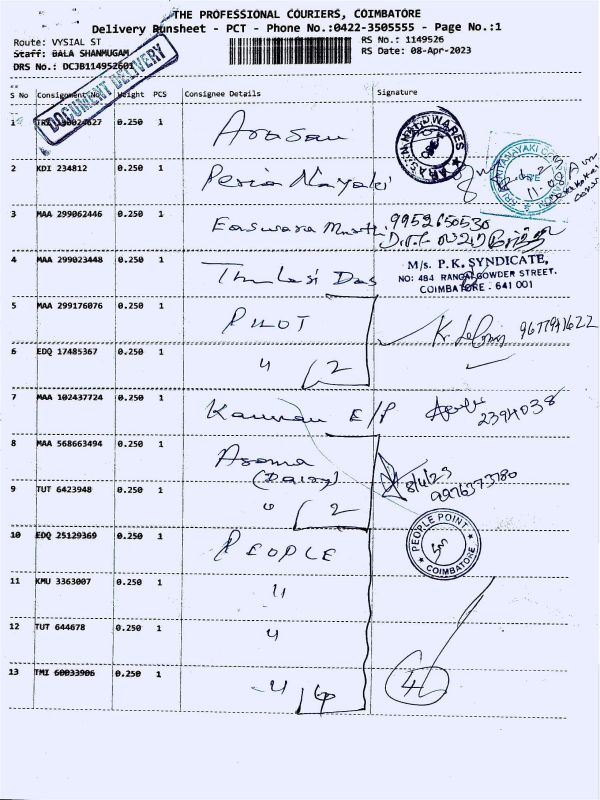 THE PROFESSIONAL COURIERS, COIMBATORE
Delivery Runsheet - PCT - Phone No.:0422-3505555 - Page No.:1
Route: VYSIAL ST
RS No.: 1149526
Staff: BALA SHANMUGAM
RS Date: 08-Apr-2023
DRS No.: DCJB114952601
DOCUMENT DELIVERY
S No Consignment No. Weight PCS Consignee Details Signature
1 0.250 1 Arasan
HARDWARES
2 KDI 234812 0.250 1 Peria Nayaki
3 MAA 299062446 0.250 1 Easwara Murthi 9952650530
4 MAA 299023448 0.250 1 Thulasi Das
M/s. P.K. SYNDICATE,
NO: 484 RANGAI GOWDER STREET.
COIMBATORE - 641 001
5 MAA 299176076 0.250 1 PILOT 9677941622
6 EDQ 17485367 0.250 1 " 2
7 MAA 102437724 0.250 1 Kannan E/P 2394038
8 MAA 568663494 0.250 1 Asoma
(Daisy) 8/4/23
9976373780
9 TUT 6423948 0.250 1 " 2
10 EDQ 25129369 0.250 1 PEOPLE
PEOPLE POINT
COIMBATORE
11 KMU 3363007 0.250 1 "
12 TUT 644678 0.250 1 "
13 TMI 60033906 0.250 1 " 4